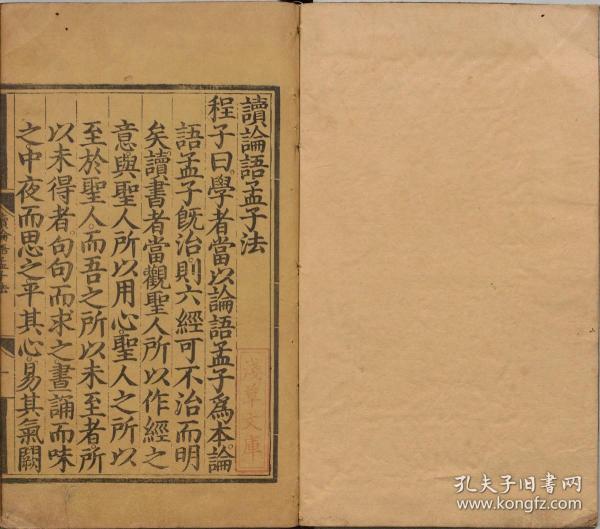 讀論語孟子法
程子曰。學者當以論語孟子爲本。論
語孟子旣治。則六經可不治而明
矣。讀書者當觀聖人所以作經之
意。與聖人所以用心。聖人之所以
至於聖人。而吾之所以未至者。所
以未得者。句句而求之。晝誦而味
之。中夜而思之。平其心。易其氣。闕
讀論語孟子法
一
淺草文庫
孔夫子旧书网
kongfz.com